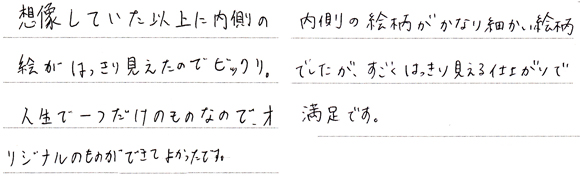 想像していた以上に内側の
絵がはっきり見えたのでビックリ。
人生で一つだけのものなので、オ
リジナルのものができてよかったです。
内側の絵柄がかなり細かい絵柄
でしたが、すごくはっきり見える仕上がりで
満足です。